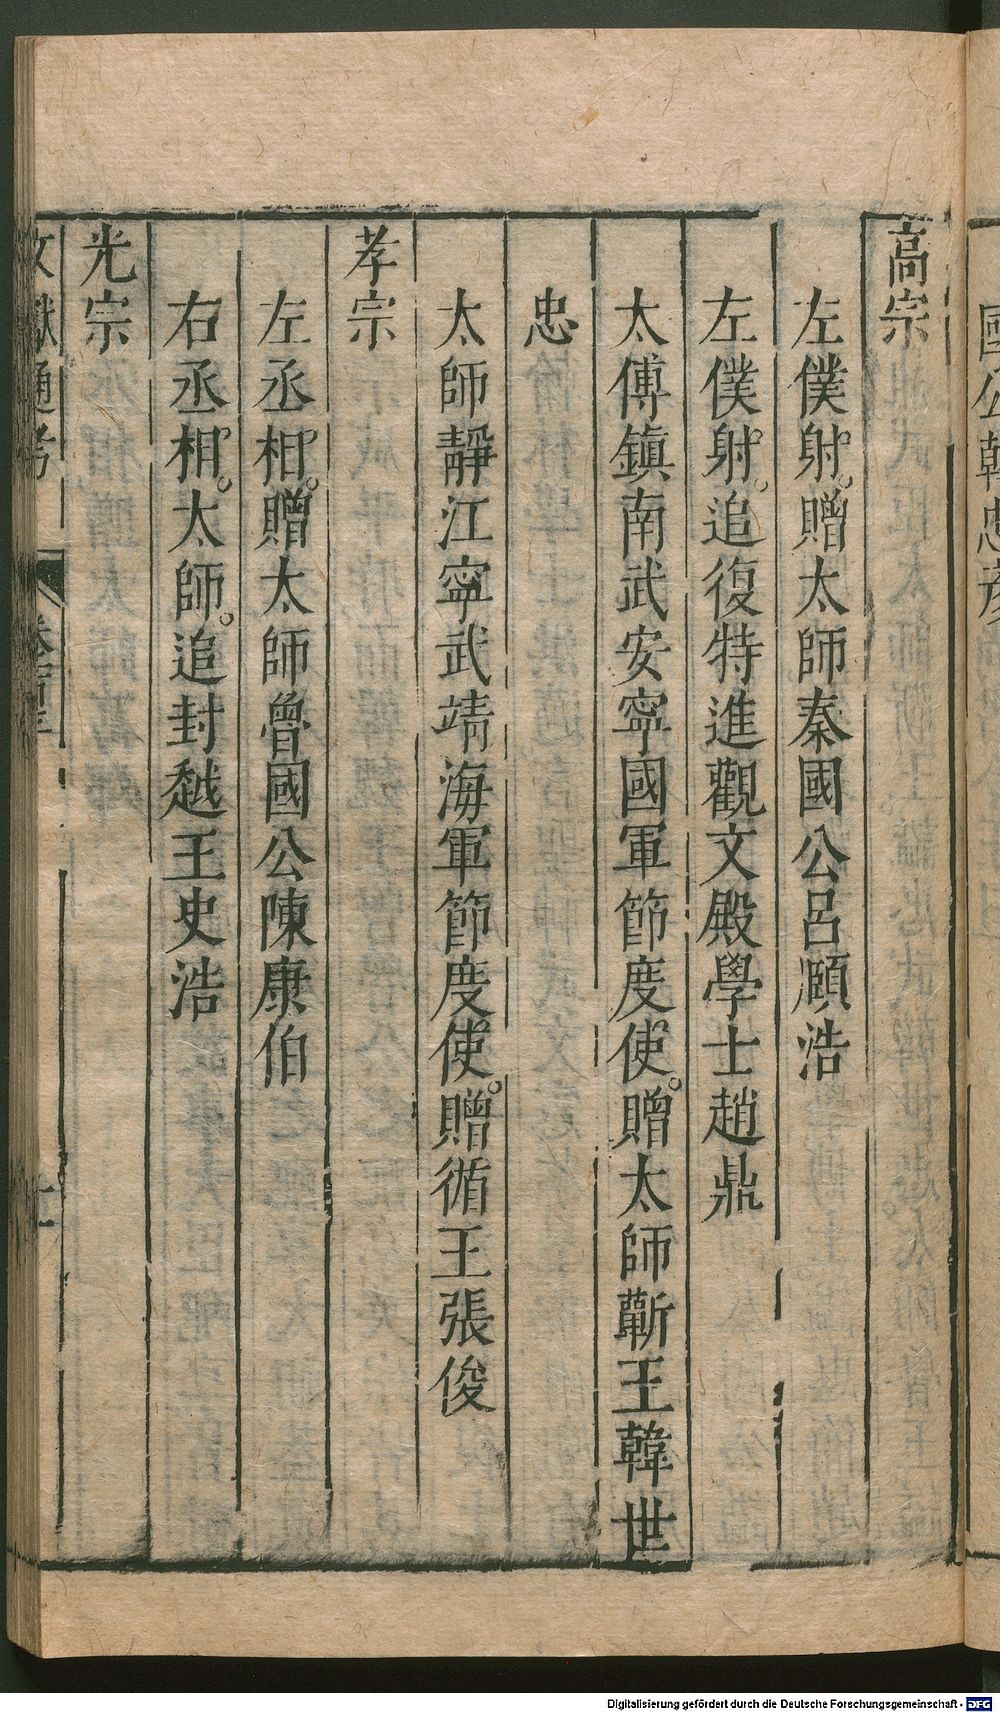 國公韓忠彥
高宗
左僕射。贈太師秦國公呂頤浩
左僕射。追復特進觀文殿學士趙鼎
太傅鎮南武安寧國軍節度使。贈太師蘄王韓世
忠
太師靜江寧武靖海軍節度使。贈循王張俊
孝宗
左丞相。贈太師魯國公陳康伯
右丞相。太師。追封越王史浩
光宗
文獻通考
Digitalisierung gefördert durch die Deutsche Forschungsgemeinschaft - DFG